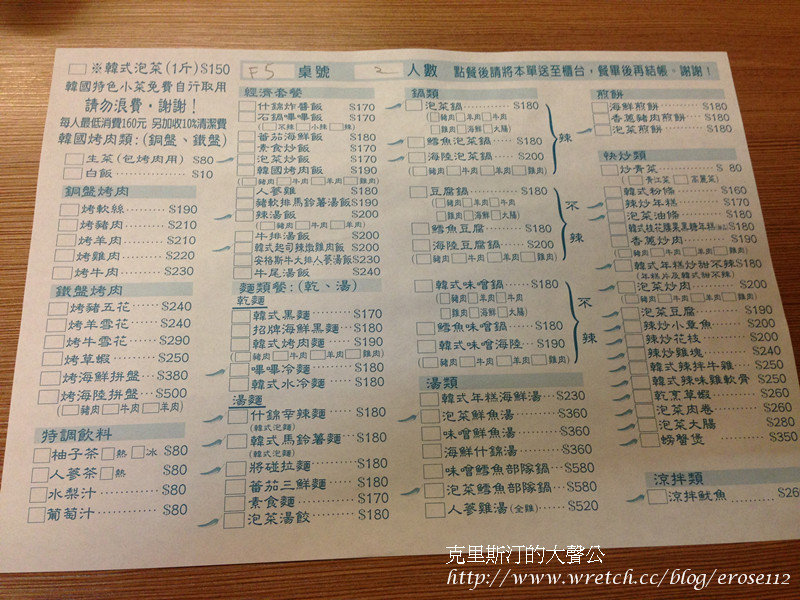 ※韓式泡菜(1斤)$150
韓國特色小菜免費自行取用
請勿浪費，謝謝！
每人最低消費160元 另加收10%清潔費
韓國烤肉類：(銅盤、鐵盤)
生菜(包烤肉用) $80
白飯 $10
銅盤烤肉
烤軟絲 $190
烤豬肉 $210
烤羊肉 $210
烤雞肉 $220
烤牛肉 $230
鐵盤烤肉
烤豬五花 $240
烤羊雪花 $240
烤牛雪花 $290
烤草蝦 $250
烤海鮮拼盤 $380
烤海陸拼盤 $500
(豬肉 牛肉 羊肉)
特調飲料
柚子茶 熱 冰 $80
人蔘茶 熱 $80
水梨汁 $80
葡萄汁 $80
F5 桌號 2 人數 點餐後請將本單送至櫃台，餐畢後再結帳。謝謝！
經濟套餐
什錦炸醬飯 $170
石鍋嗶嗶飯 $170
(不辣 小辣 辣)
蕃茄海鮮飯 $180
素食炒飯 $170
泡菜炒飯 $170
韓國烤肉飯 $190
(豬肉 牛肉 羊肉 雞肉)
人蔘雞 $180
豬軟排馬鈴薯湯飯$190
辣湯飯 $200
(豬肉 牛肉 羊肉)
牛排湯飯 $200
韓式起司辣燉雞肉飯 $200
安格斯牛大排人蔘湯飯$230
牛尾湯飯 $240
麵類餐：(乾、湯)
乾麵
韓式黑麵 $170
招牌海鮮黑麵 $180
韓式烤肉麵 $190
(豬肉 牛肉 羊肉 雞肉)
嗶嗶冷麵 $180
韓式水冷麵 $180
湯麵
什錦辛辣麵 $180
(韓式泡麵)
韓式馬鈴薯麵 $180
(韓式泡麵)
將碰拉麵 $180
蕃茄三鮮麵 $180
素食麵 $170
泡菜湯餃 $180
鍋類
泡菜鍋 $180
(豬肉 羊肉 牛肉
雞肉 海鮮 大腸)
鱈魚泡菜鍋 $180
海陸泡菜鍋 $200
(豬肉 牛肉 羊肉 雞肉)
辣
豆腐鍋 $180
(豬肉 羊肉 牛肉
雞肉 海鮮 大腸)
鱈魚豆腐 $180
海陸豆腐鍋 $200
(豬肉 牛肉 羊肉 雞肉)
不辣
韓式味噌鍋 $180
(豬肉 羊肉 牛肉
海鮮 雞肉)
鱈魚味噌鍋 $180
韓式味噌海陸 $190
(豬肉 牛肉 羊肉 雞肉)
不辣
湯類
韓式年糕海鮮湯 $230
泡菜鮮魚湯 $360
味噌鮮魚湯 $360
海鮮什錦湯 $360
味噌鱈魚部隊鍋 $580
泡菜鱈魚部隊鍋 $580
人蔘雞湯(全雞) $520
煎類
海鮮煎餅 $180
香蔥豬肉煎餅 $180
泡菜煎餅 $180
快炒類
炒青菜 $ 80
(青江菜 高麗菜)
韓式粉條 $160
辣炒年糕 $170
泡菜油條 $180
香蔥炒肉 $190
(豬肉 牛肉 羊肉 雞肉)
韓式年糕炒甜不辣$180
(年糕片及韓式甜不辣)
泡菜炒肉 $200
(豬肉 牛肉 羊肉 雞肉)
泡菜豆腐 $190
辣炒小章魚 $200
辣炒花枝 $200
辣炒雞塊 $240
韓式辣拌牛雜 $250
韓式辣味雞軟骨 $250
乾烹草蝦 $260
泡菜肉卷 $260
泡菜大腸 $280
螃蟹煲 $350
涼拌類
涼拌魷魚 $26
克里斯汀的大聲公
http://www.wretch.cc/blog/erose112